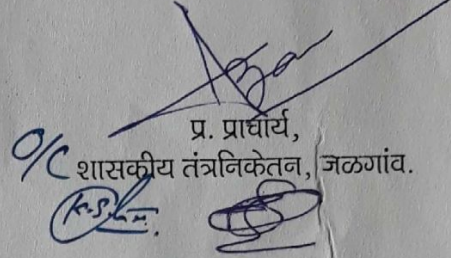 प्र. प्राचार्य,
O/C शासकीय तंत्रनिकेतन, जळगांव.